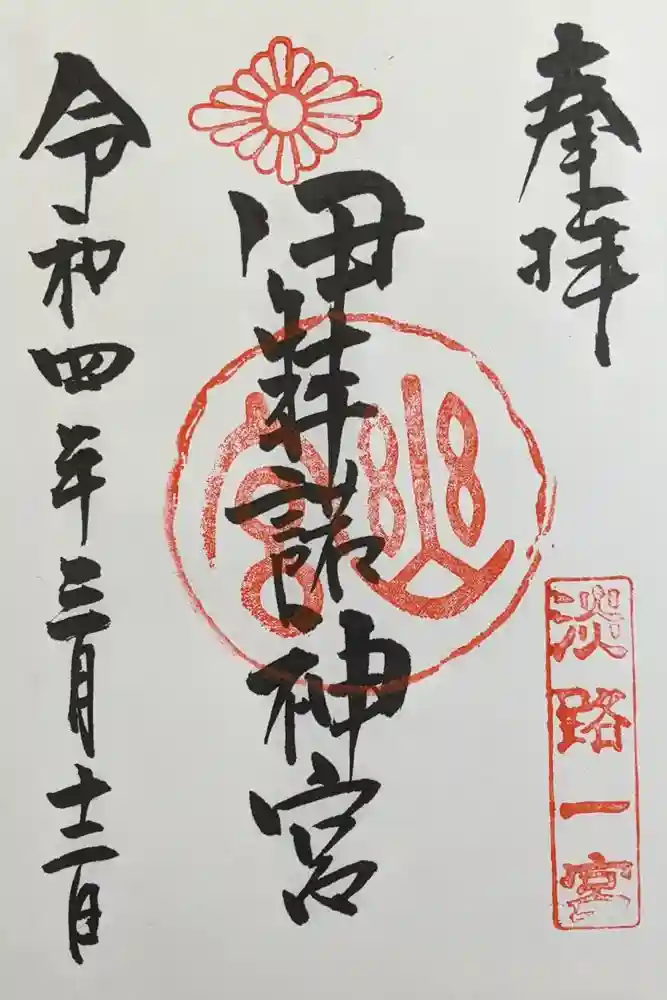 奉拝
淡路一宮
伊弉諾神宮
幽宮
令和四年三月十二日